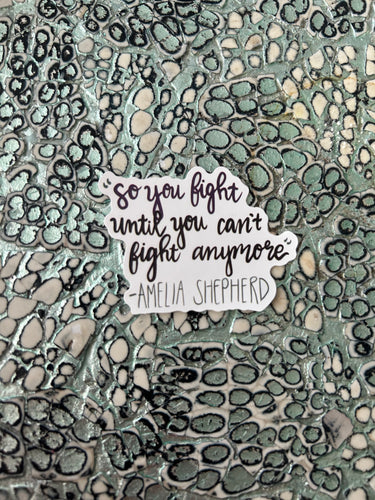 "so you fight
until you can't
fight anymore"
-AMELIA SHEPHERD